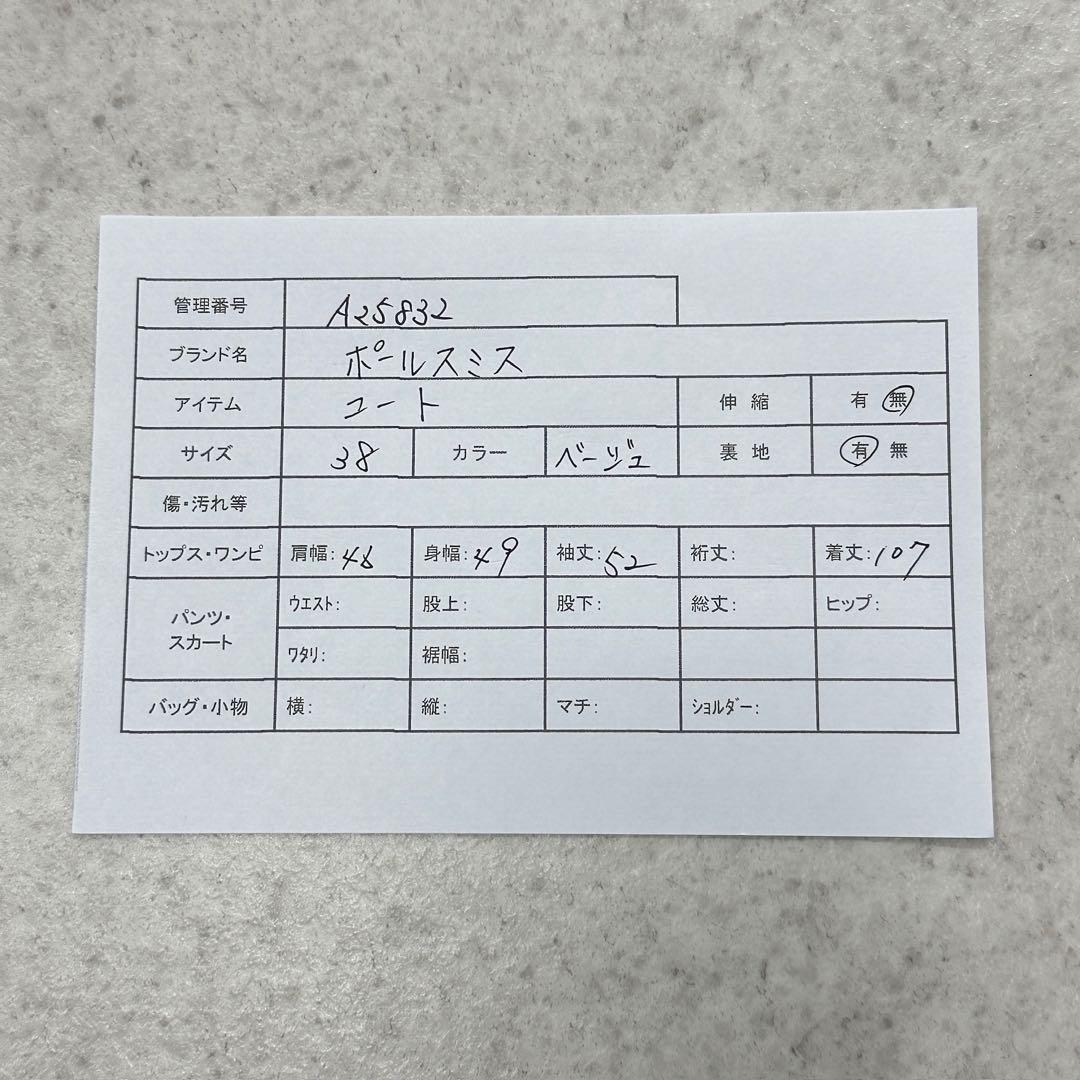 管理番号 A25832
ブランド名 ポールスミス
アイテム コート 伸縮 有 無
サイズ 38 カラー ベージュ 裏地 有 無
傷・汚れ等
トップス・ワンピ 肩幅: 46 身幅: 49 袖丈: 52 裄丈: 着丈: 107
パンツ・
スカート
ウエスト: 股上: 股下: 総丈: ヒップ:
ワタリ: 裾幅:
バッグ・小物 横: 縦: マチ: ショルダー: